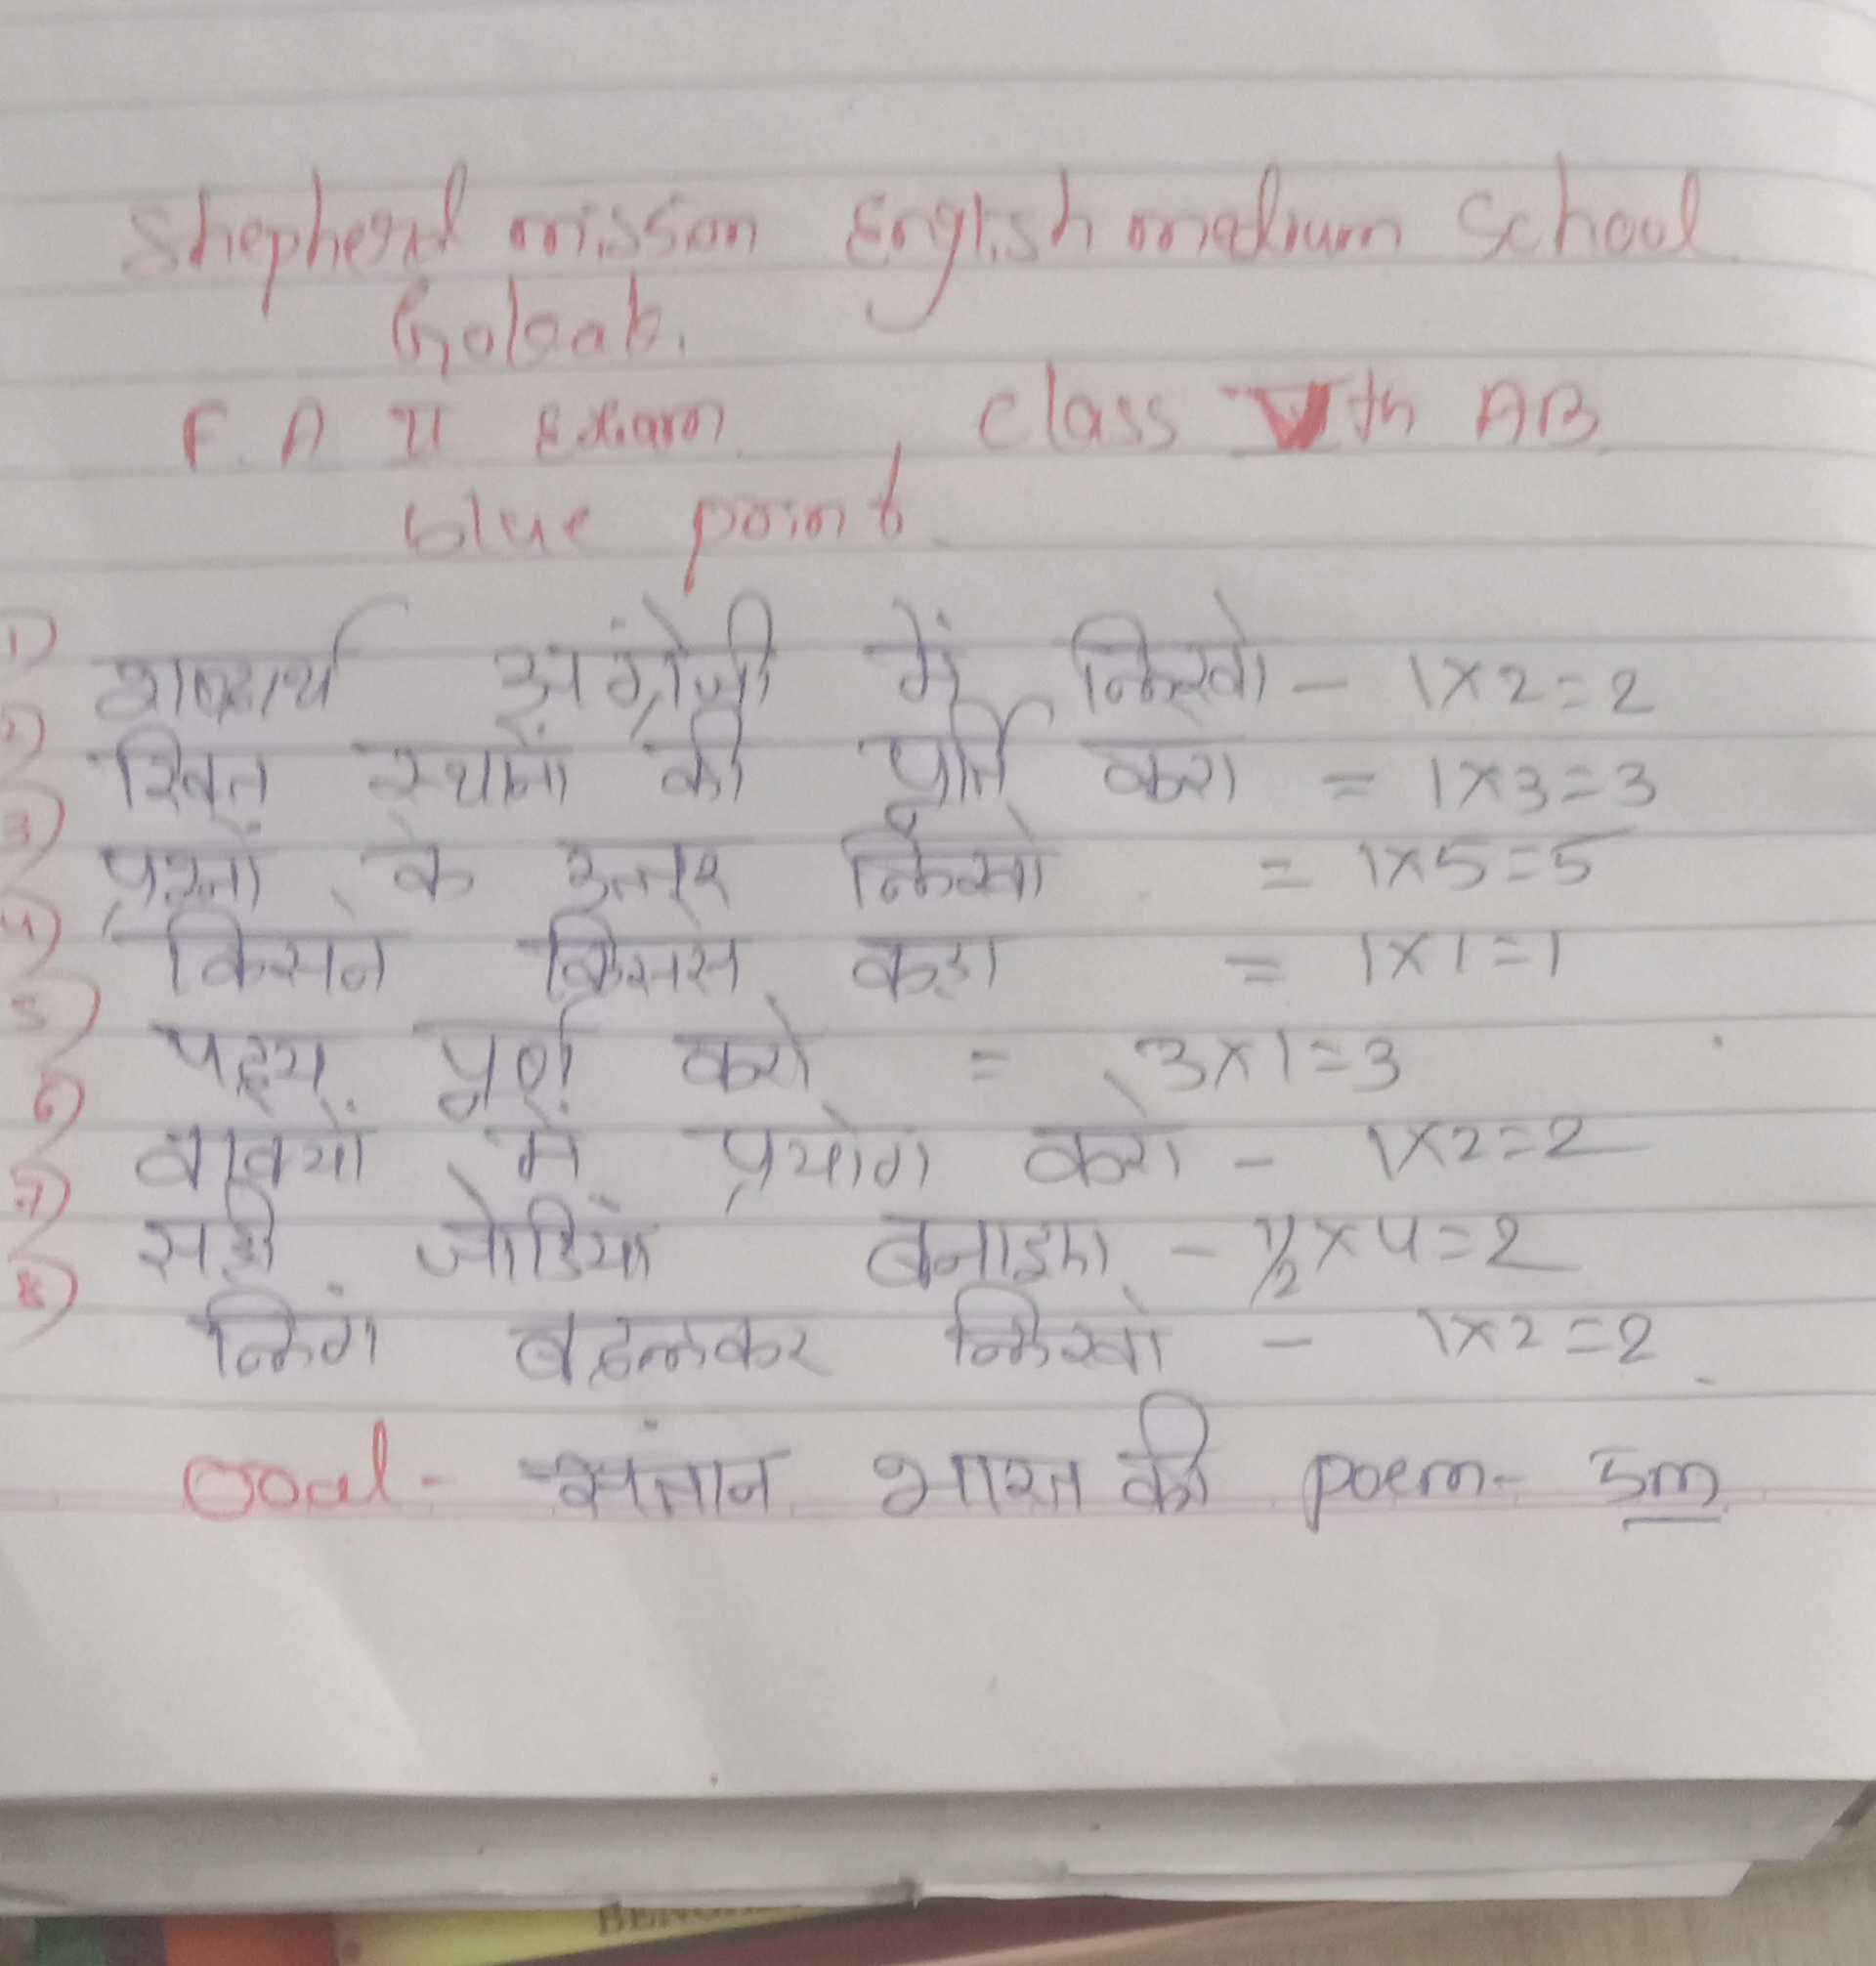 Shepherd mission English medium School
Golgab.
F. A II Exam, class Vth AB
blue point.
1) शब्दार्थ अंग्रेजी में लिखो - 1×2=2
2) रिक्त स्थानों की पूर्ति करो = 1×3=3
3) प्रश्नों के उत्तर लिखो = 1×5=5
4) किसने किससे कहा = 1×1=1
5) पद्य पूर्ण करो = 3×1=3
6) वाक्यों में प्रयोग करो - 1×2=2
7) सही जोडियाँ बनाइए - 1/2×4=2
8) लिंग बदलकर लिखो - 1×2=2
Oral - संतान भारत की poem - 5m
BENG